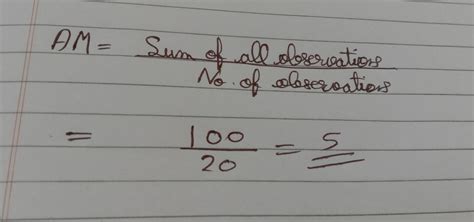 AM = Sum of all observations
No. of observations
= 100
20 = 5